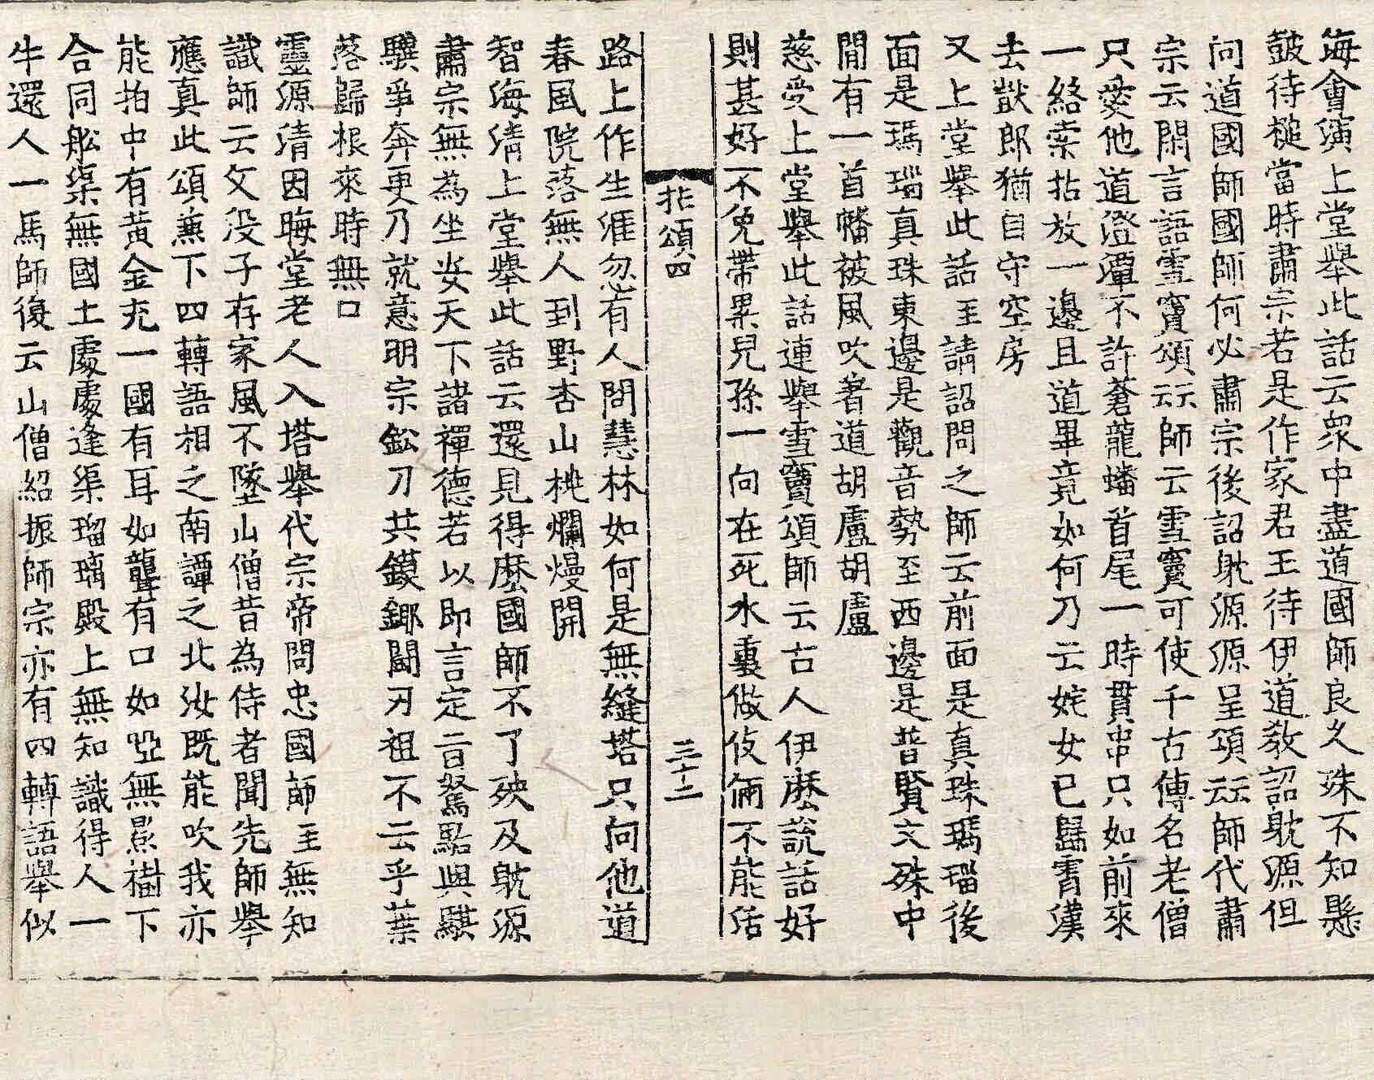 海會演上堂舉此話云眾中盡道國師良久殊不知懸
皷待槌當時肅宗若是作家君王待伊道教詔躭源但
向道國師國師何必肅宗後詔躭源源呈頌云云師代肅
宗云閑言語雪竇頌云云師云雪竇可使千古傳名老僧
只愛他道澄潭不許蒼龍蟠首尾一時貫串只如前來
一絡索拈放一邊且道畢竟如何乃云姹女已歸霄漢
去獃郎猶自守空房
又上堂舉此話至請詔問之師云前面是真珠瑪瑙後
面是瑪瑙真珠東邊是觀音勢至西邊是普賢文殊中
間有一首幡被風吹著道胡盧胡盧
慈受上堂舉此話連舉雪竇頌師云古人伊麽說話好
則甚好不免帶累兒孫一向在死水裏做伎倆不能活
拈頌四
三十二
路上作生涯忽有人問慧林如何是無縫塔只向他道
春風院落無人到野杏山桃爛熳開
智海清上堂舉此話云還見得麽國師不了殃及躭源
肅宗無為坐安天下諸禪德若以即言定旨駑點與騏
驥爭奔更乃就意明宗鈆刀共鏌鎁鬪刃祖不云乎葉
落歸根來時無口
靈源清因晦堂老人入塔舉代宗帝問忠國師至無知
識師云父没子存家風不墜山僧昔為侍者聞先師舉
應真此頌兼下四轉語相之南譚之北汝既能吹我亦
能拍中有黃金充一國有耳如聾有口如啞無影樹下
合同舩渠無國土處處逢渠瑠璃殿上無知識得人一
牛還人一馬師後云山僧紹振師宗亦有四轉語舉似